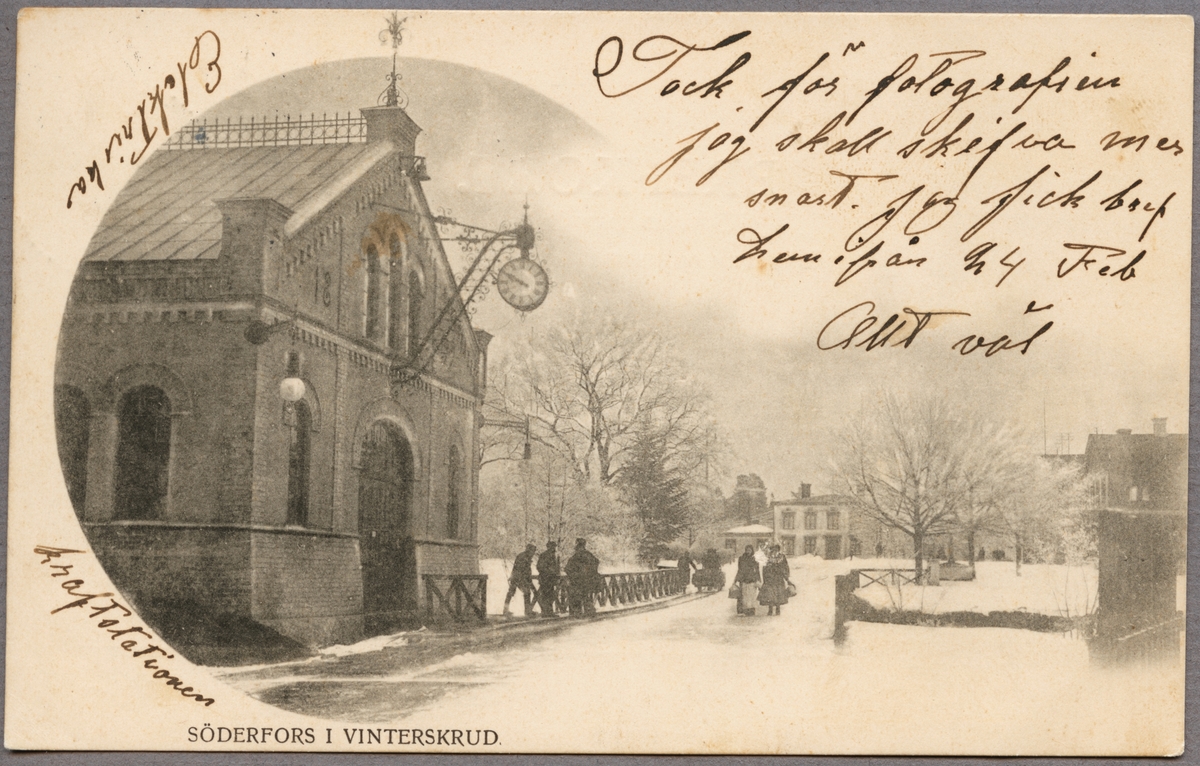 Tock för fotografien
jag skall skrifva mer
snart. jag fick bref
hemifrån 24 Feb
Allt väl
Elektriska
kraftstationen
SÖDERFORS I VINTERSKRUD.